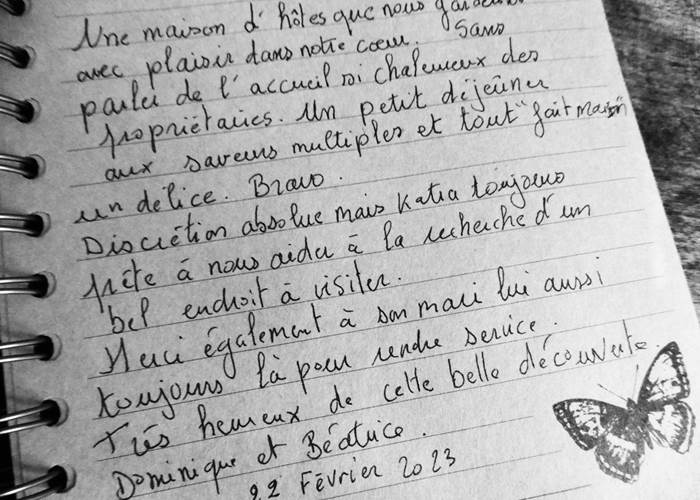 Une maison d'hôtes que nous garderons
avec plaisir dans notre cœur. Sans
parler de l'accueil si chaleureux des
propriétaires. Un petit déjeuner
aux saveurs multiples et tout "fait maison"
un délice. Bravo.
Discrétion absolue mais Katia toujours
prête à nous aider à la recherche d'un
bel endroit à visiter.
Merci également à son mari lui aussi
toujours là pour rendre service.
Très heureux de cette belle découverte.
Dominique et Béatrice.
22 Février 2023